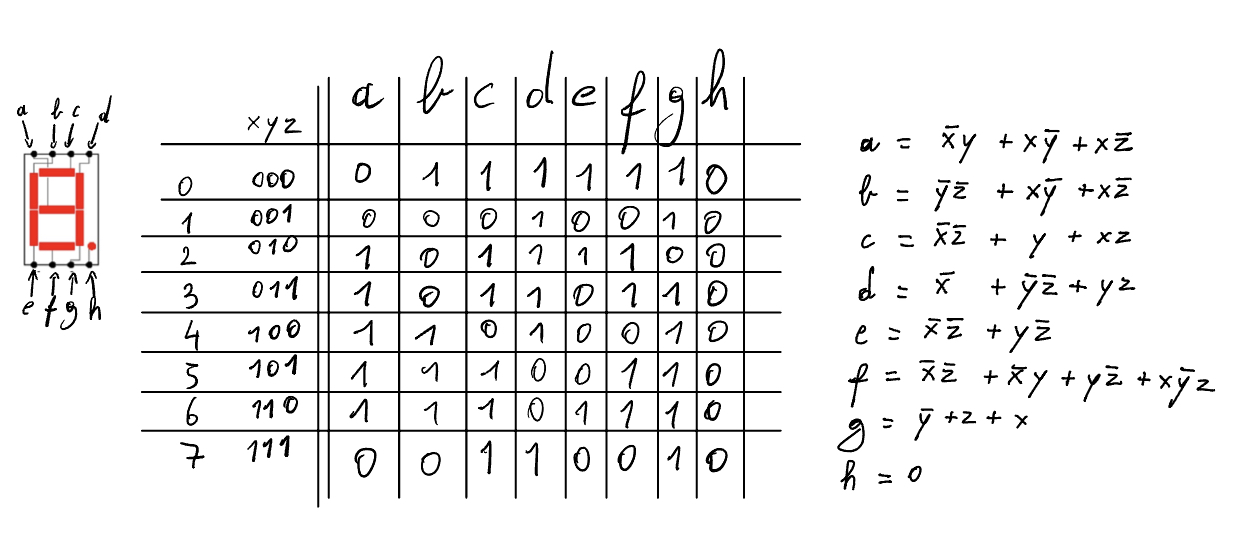 a b c d
e f g h
a b c d e f g h
xyz
0 000 0 1 1 1 1 1 1 0
1 001 0 0 0 1 0 0 1 0
2 010 1 0 1 1 1 1 0 0
3 011 1 0 1 1 0 1 1 0
4 100 1 1 0 1 0 0 1 0
5 101 1 1 1 0 0 1 1 0
6 110 1 1 1 0 1 1 1 0
7 111 0 0 1 1 0 0 1 0
a = x̄y + xȳ + xz̄
b = ȳz̄ + xȳ + xz̄
c = x̄z̄ + y + xz
d = x̄ + ȳz̄ + yz
e = x̄z̄ + yz̄
f = x̄z̄ + x̄y + yz̄ + xȳz
g = ȳ + z + x
h = 0